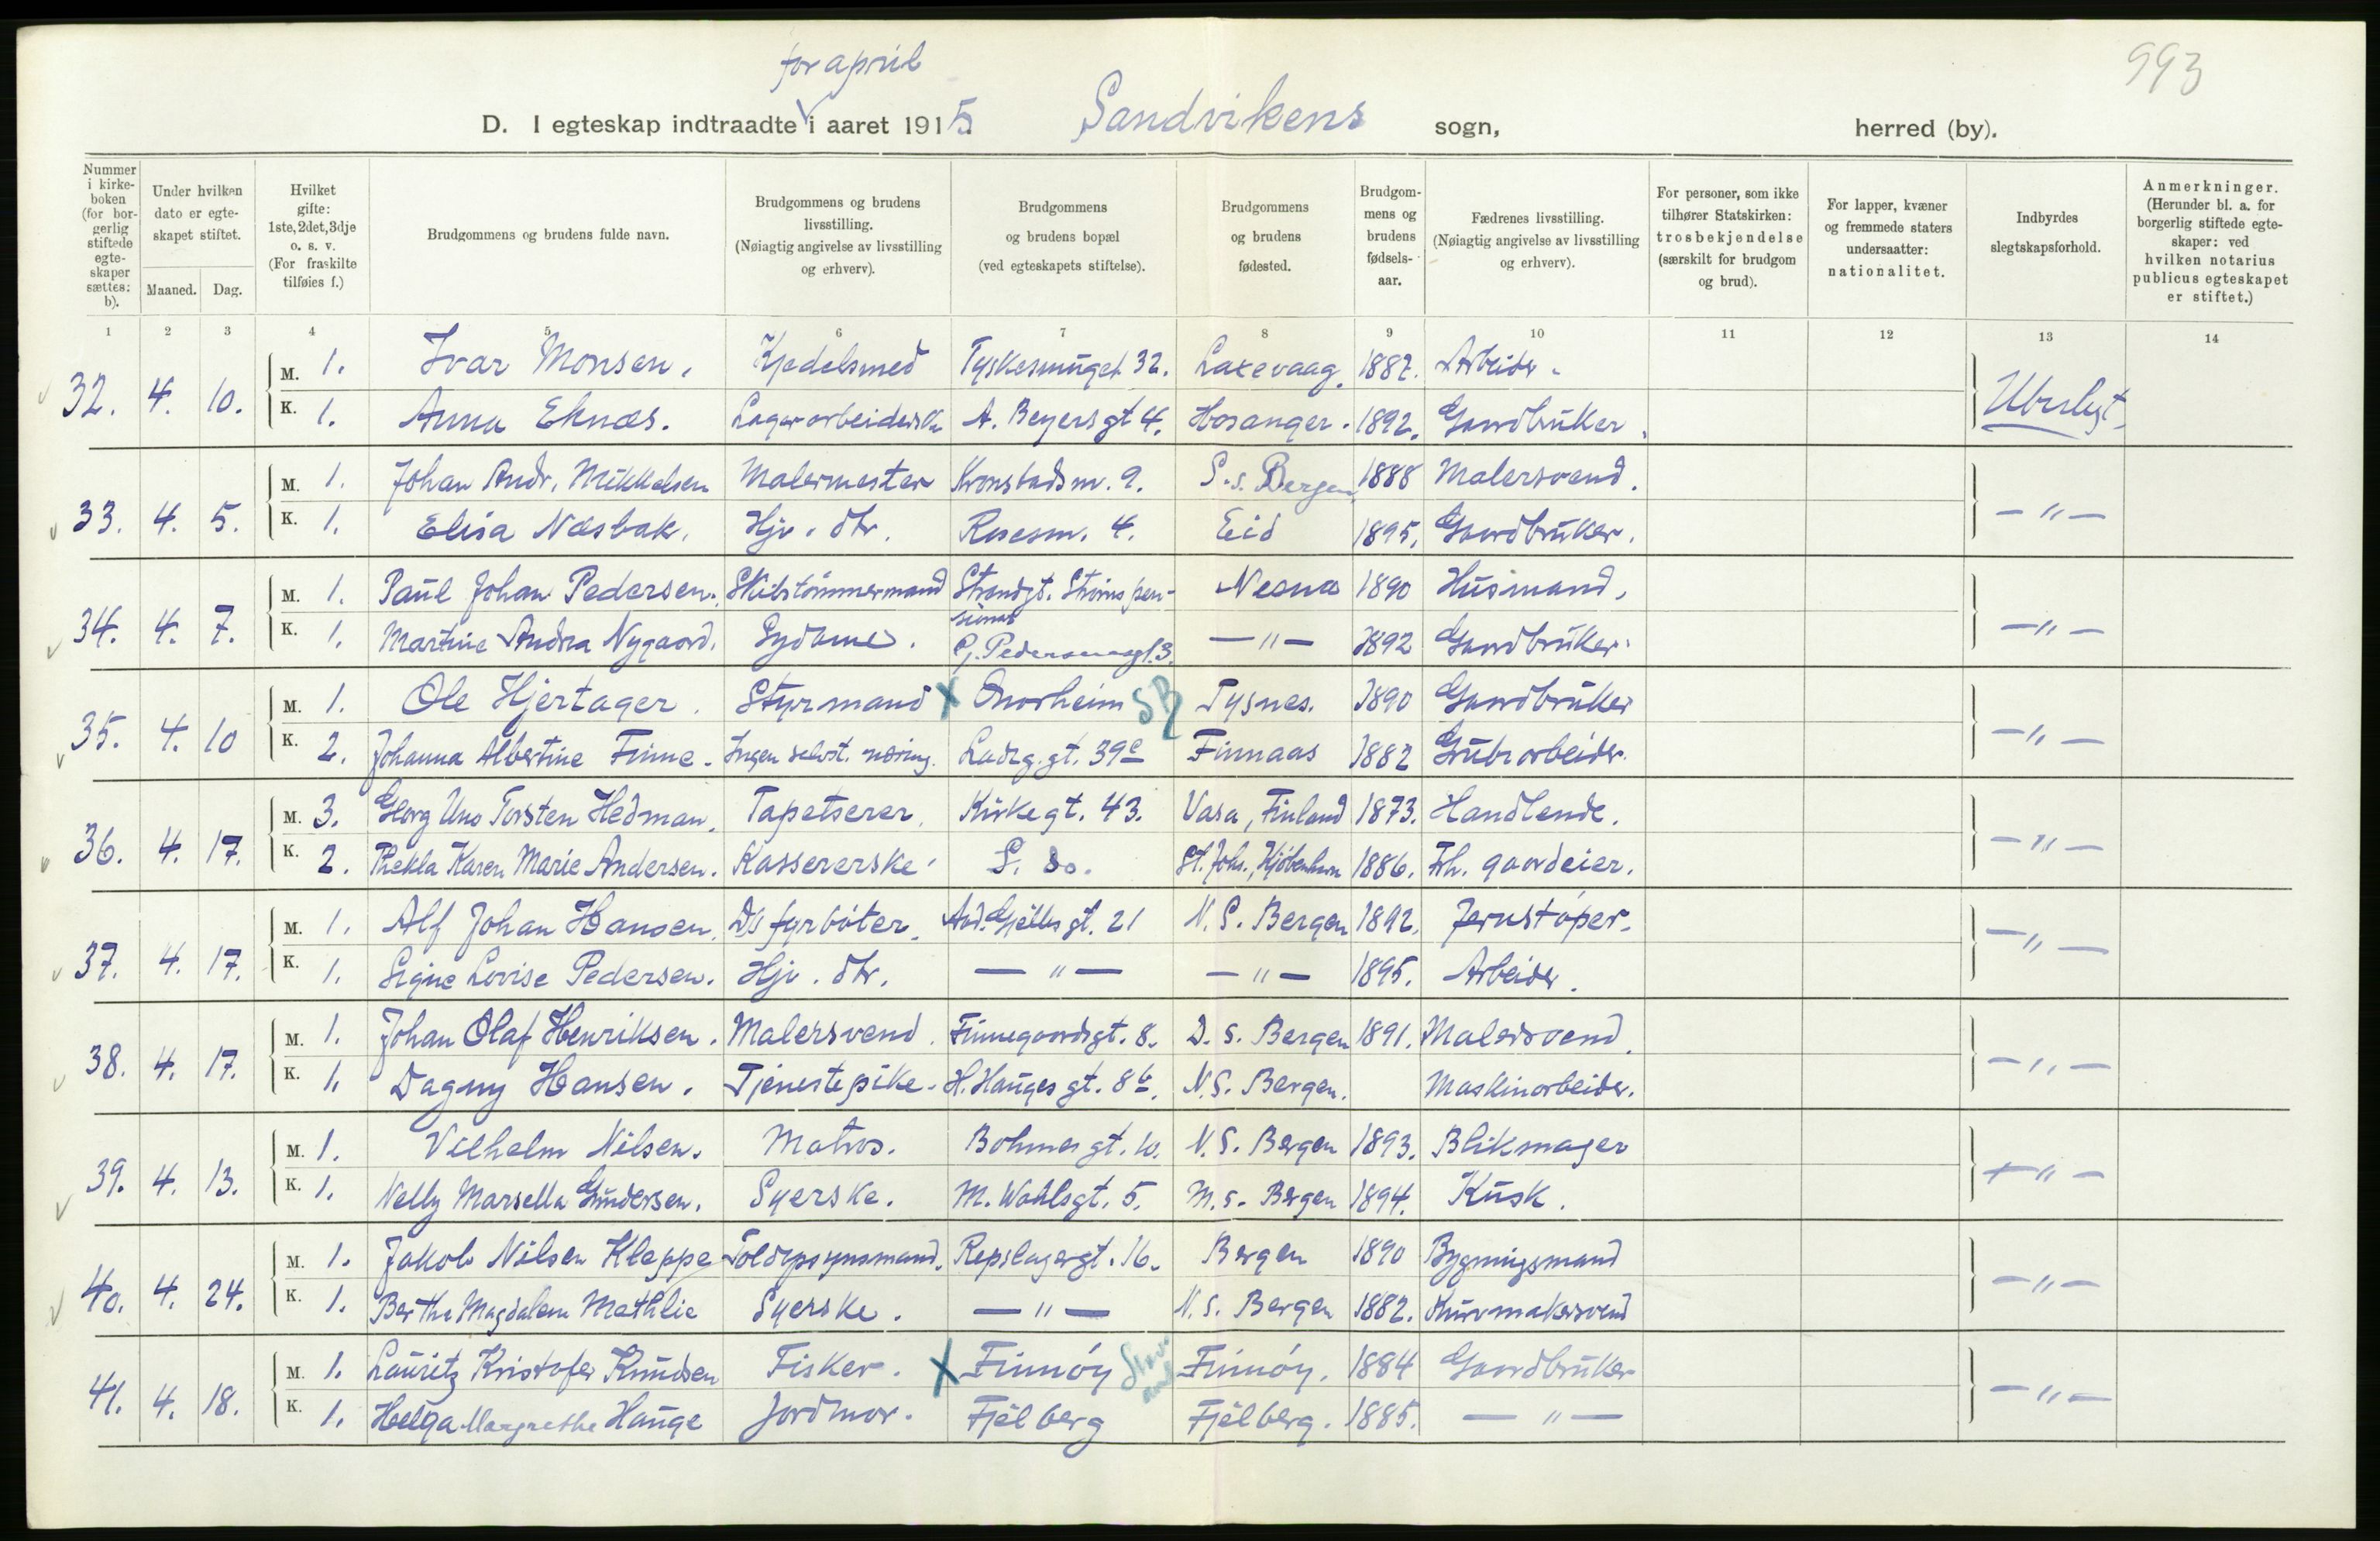 993
for april
D. I egteskap indtraadte i aaret 1915. Sandvikens sogn, herred (by).
Nummer i kirkeboken (for borgerlig stiftede egteskaper sættes: b).
Under hvilken dato er egteskapet stiftet.
Maaned. Dag.
Hvilket gifte: 1ste, 2det, 3dje o. s. v. (For fraskilte tilføies f.)
Brudgommens og brudens fulde navn.
Brudgommens og brudens livsstilling. (Nøiagtig angivelse av livsstilling og erhverv).
Brudgommens og brudens bopæl (ved egteskapets stiftelse).
Brudgommens og brudens fødested.
Brudgommens og brudens fødselsaar.
Fædrenes livsstilling. (Nøiagtig angivelse av livsstilling og erhverv).
For personer, som ikke tilhører Statskirken: trosbekjendelse (særskilt for brudgom og brud).
For lapper, kvæner og fremmede staters undersaatter: nationalitet.
Indbyrdes slegtskapsforhold.
Anmerkninger. (Herunder bl. a. for borgerlig stiftede egteskaper: ved hvilken notarius publicus egteskapet er stiftet.)
1 2 3 4 5 6 7 8 9 10 11 12 13 14
32. 4. 10. M. 1. Ivar Monsen. Kjedelsmed Tyskesmuget 32. Laxevaag. 1882. Arbeider. Ubesl.
K. 1. Anna Eknæs. Lagerarbeiderske A. Beyersgt 4. Hosanger. 1892. Gaardbruker.
33. 4. 5. M. 1. Johan Andr. Mikkelsen Malermester Kronstadsm. 9. S.s. Bergen 1888 Malersvend. — " —
K. 1. Elisa Næsbak. Hjv. dtr. Rosesm. 4. Eid 1895. Gaardbruker.
34. 4. 7. M. 1. Paul Johan Pedersen. Skibstömmermand Strandgt. Ströms pensionat Nesna 1890 Husmand. — " —
K. 1. Martine Andrea Nygaard. Sydame. G. Pedersensgt. 3. — " — 1892 Gaardbruker.
35. 4. 10 M. 1. Ole Hjertager. Styrmand X Onarheim SB Tysnes. 1890 Gaardbruker — " —
K. 2. Johanna Albertine Finne. Ingen selvst. næring. Ladeg.gt. 39c Finnaas 1882 Grubearbeider.
36. 4. 17. M. 3. Georg Uno Torsten Hedman. Tapetserer. Kirkegt. 43. Vasa, Finland 1873. Handlende. — " —
K. 2. Thekla Karen Marie Andersen. Kassererske. S. do. St. Johs., Kjöbenhavn 1886. Fh. gaardeier.
37. 4. 17. M. 1. Alf Johan Hansen. D/s fyrböter. And. Gjelles gt. 21 N. S. Bergen 1892. Jernstöper. — " —
K. 1. Signe Lovise Pedersen. Hjv. dtr. — " — — " — 1895. Arbeider.
38. 4. 17. M. 1. Johan Olaf Henriksen. Malersvend. Finnegaardsgt. 8. D. S. Bergen 1891. Malersvend. — " —
K. 1. Dagny Hansen. Tjenestepike. H. Hauges gt. 8b. N.S. Bergen. Maskinarbeider.
39. 4. 13. M. 1. Vilhelm Nilsen. Matros. Bohmers gt. 10. N. S. Bergen 1893. Blikmager — " —
K. 1. Nelly Marsella Gundersen. Syerske. M. Wahlsgt. 5. M. S. Bergen 1894. Kusk.
40. 4. 24. M. 1. Jakob Nilsen Kleppe Toldopsynsmand. Repslagergt. 16. Bergen 1890 Bygningsmand — " —
K. 1. Berthe Magdalene Mathlie Syerske. — " — N. S. Bergen 1882. Kurvmakersvend
41. 4. 18. M. 1. Lauritz Kristofer Knudsen Fisker. X Finnöy Finnöy. 1884 Gaardbruker — " —
K. 1. Helga Margrethe Hauge Jordmor. Fjelberg Fjelberg. 1885. — " —